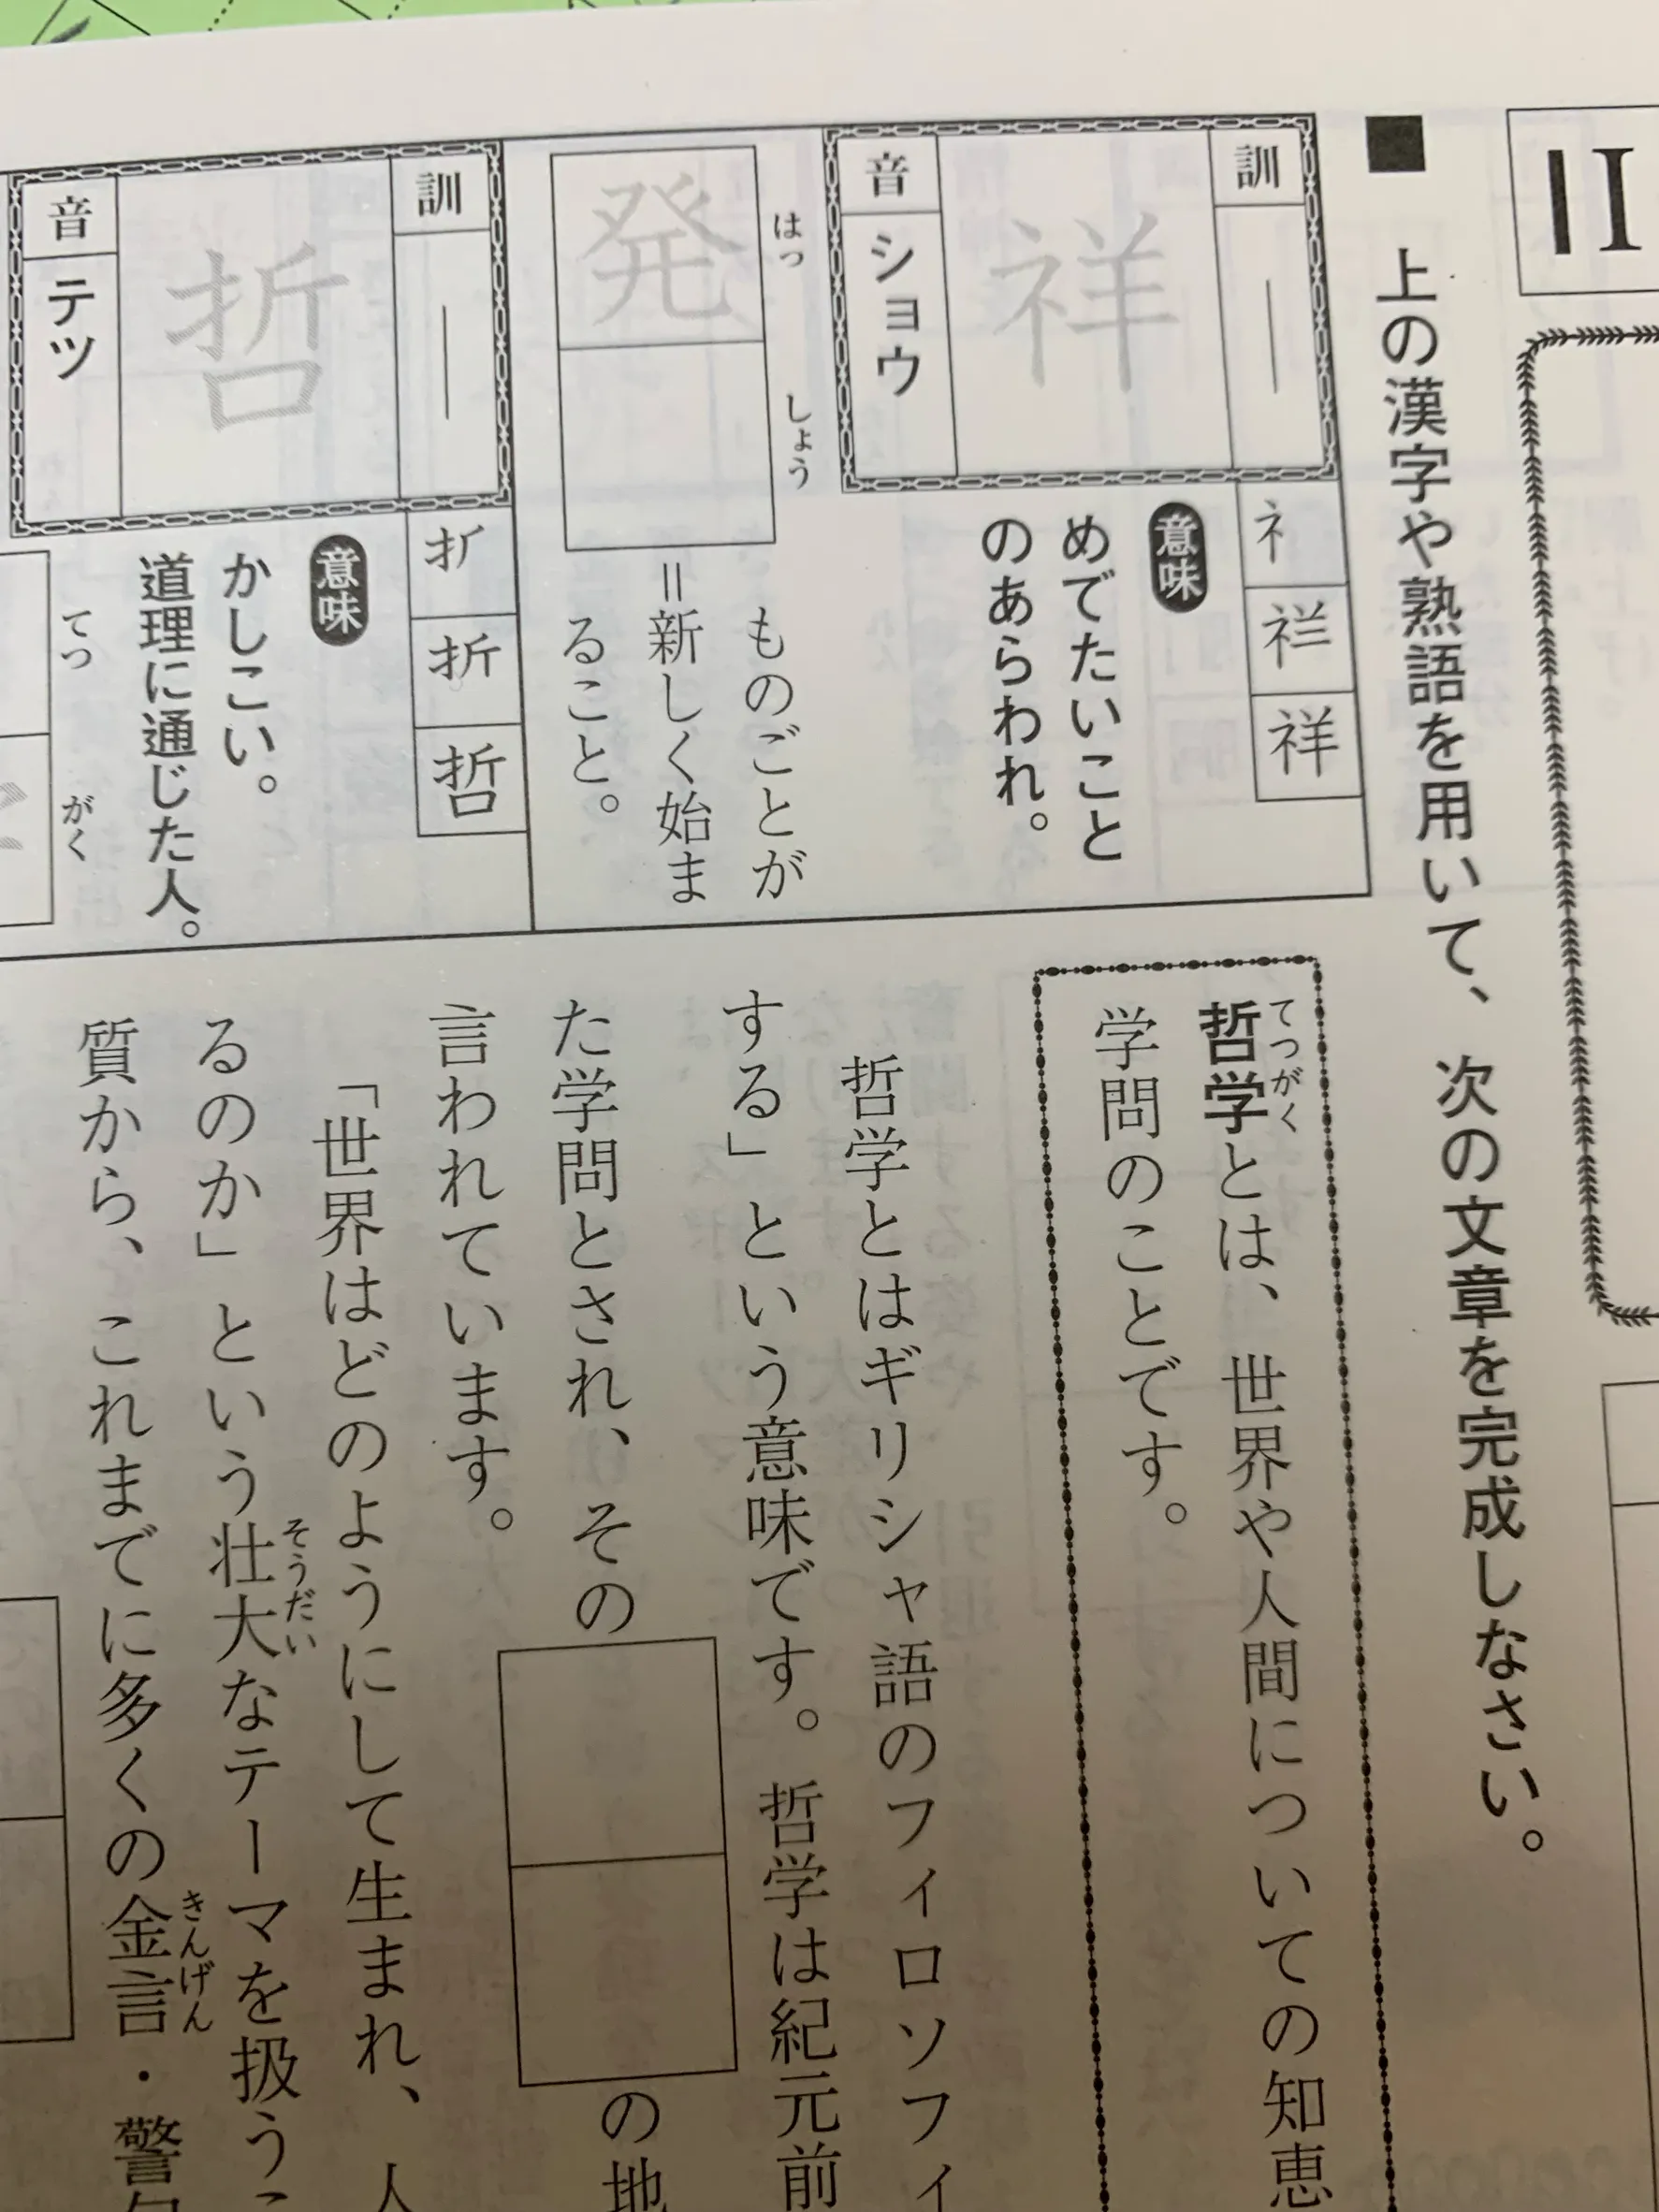 ■ 上の漢字や熟語を用いて、次の文章を完成しなさい。
訓
―
祥
音
ショウ
ネ
祥
意味
めでたいこと
のあらわれ。
はっ
しょう
発
ものごとが
=新しく始ま
ること。
訓
―
哲
音
テツ
折
哲
意味
かしこい。
道理に通じた人。
てつ
がく
哲学とは、世界や人間についての知恵
てつがく
学問のことです。
哲学とはギリシャ語のフィロソフィ
する」という意味です。哲学は紀元前
た学問とされ、その
の地
言われています。
「世界はどのようにして生まれ、人
るのか」という壮大なテーマを扱うこ
そうだい
質から、これまでに多くの金言・警句
きんげん